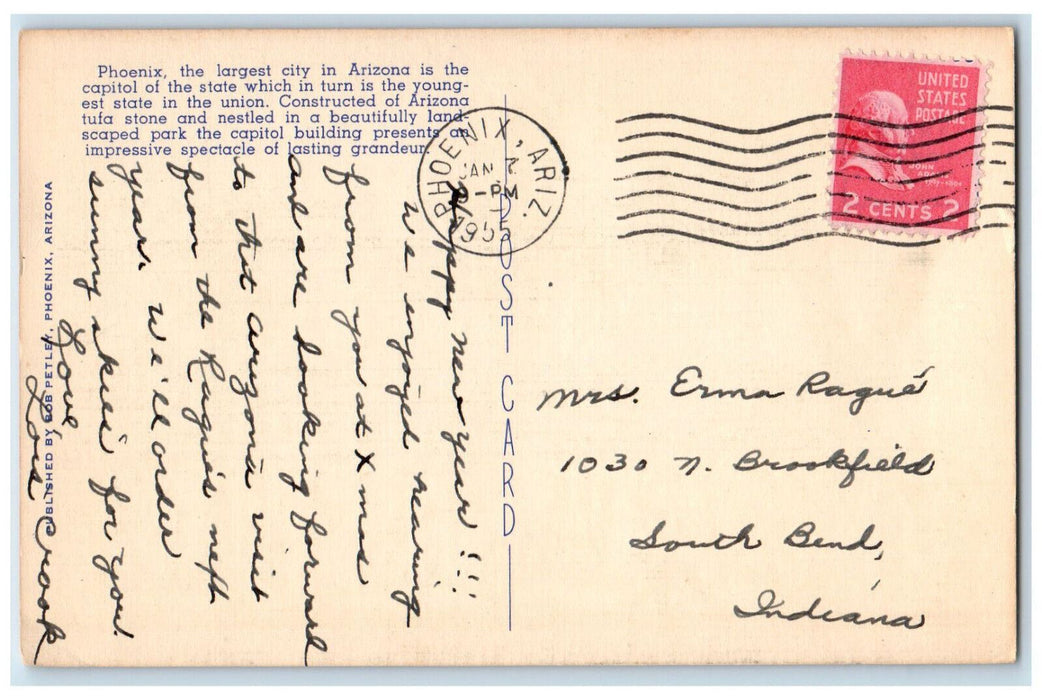 Phoenix, the largest city in Arizona is the
capitol of the state which in turn is the young-
est state in the union. Constructed of Arizona
tufa stone and nestled in a beautifully land-
scaped park the capitol building presents an
impressive spectacle of lasting grandeur.
PUBLISHED BY BOB PETLEY, PHOENIX, ARIZONA
POST CARD
PHOENIX, ARIZ.
JAN 7
-PM
1955
UNITED
STATES
POSTAGE
JOHN
2 CENTS 2
Happy New Year!!!
We enjoyed hearing
from you at Xmas
and are looking forward
to that Arizona visit
from the Ragué's next
year. We'll order
sunny skies for you.
Love
Lois Crook
Mrs. Erma Ragué
1030 N. Brookfield
South Bend,
Indiana